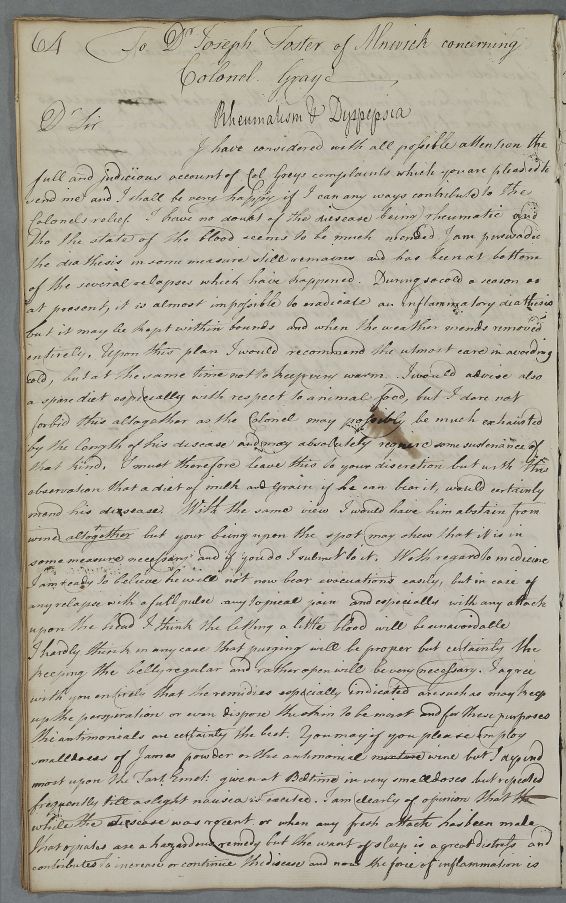 64 To Dr. Joseph Foster of Alnwick concerning
Colonel Gray
Rheumatism & Dyspepsia
Dr Sir
I have considered with all possible attention the
full and judicious account of Col Greys complaints which you are pleased to
send me and I shall be very happy if I can any ways contribute to the
Colonels relief. I have no doubt of the disease being rheumatic and
tho the state of the blood seems to be much mended I am perswaded
the diathesis in some measure still remains and has been at bottom
of the several relapses which have happened. During so cold a season as
at present, it is almost impossible to eradicate an inflammatory diathesis
but it may be kept within bounds and when the weather mends removed
entirely. Upon this plan I would recommend the utmost care in avoiding
cold, but at the same time not to keep very warm. I would advise also
a spare diet especially with respect to animal food, but I dare not
forbid this altogether as the Colonel may possibly be much exhausted
by the length of his disease and may absolutely require some sustenance of
that kind. I must therefore leave this to your discretion but with this
observation that a diet of milk and Grain if he can bear it, would certainly
mend his disease. With the same view I would have him abstain from
wine altogether but your being upon the spot may shew that it is in
some measure necessary and if you do I submit to it. With regard to medicine
I am ready to believe he will not now bear evacuations easily, but in case of
any relapse with a full pulse any topical pain and especially with any attack
upon the head I think the letting a little blood will be unavoidable
I hardly think in any case that purging will be proper but certainly the
keeping the belly regular and rather open will be very necessary. I agree
with you entirely that the remedies especially indicated are such as may keep
up the perspiration or even dispose the skin to be moist and for these purposes
the antimonials are certainly the best. You may if you please employ
small doses of James powder or the antimonial wine but I depend
most upon the Tart. Emet: given at Bedtime in very small doses but repeated
frequently till a slight nausea is excited. I am clearly of opinion that
while the disease was recent or when any fresh attack has been made
that opiates are a hazardous remedy but the want of sleep is a great distress and
contributes to increase or continue the disease and now the force of inflammation is